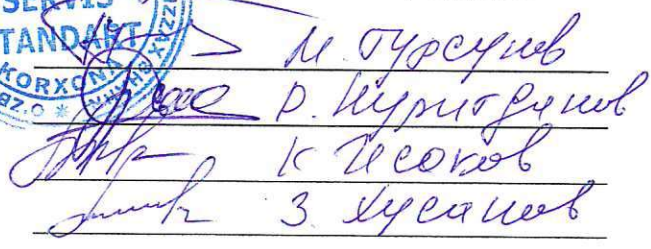 SERVIS
STANDART
KORXONA
М. Турсунов
Р. Нуритдинов
К Исоков
З. Хусанов